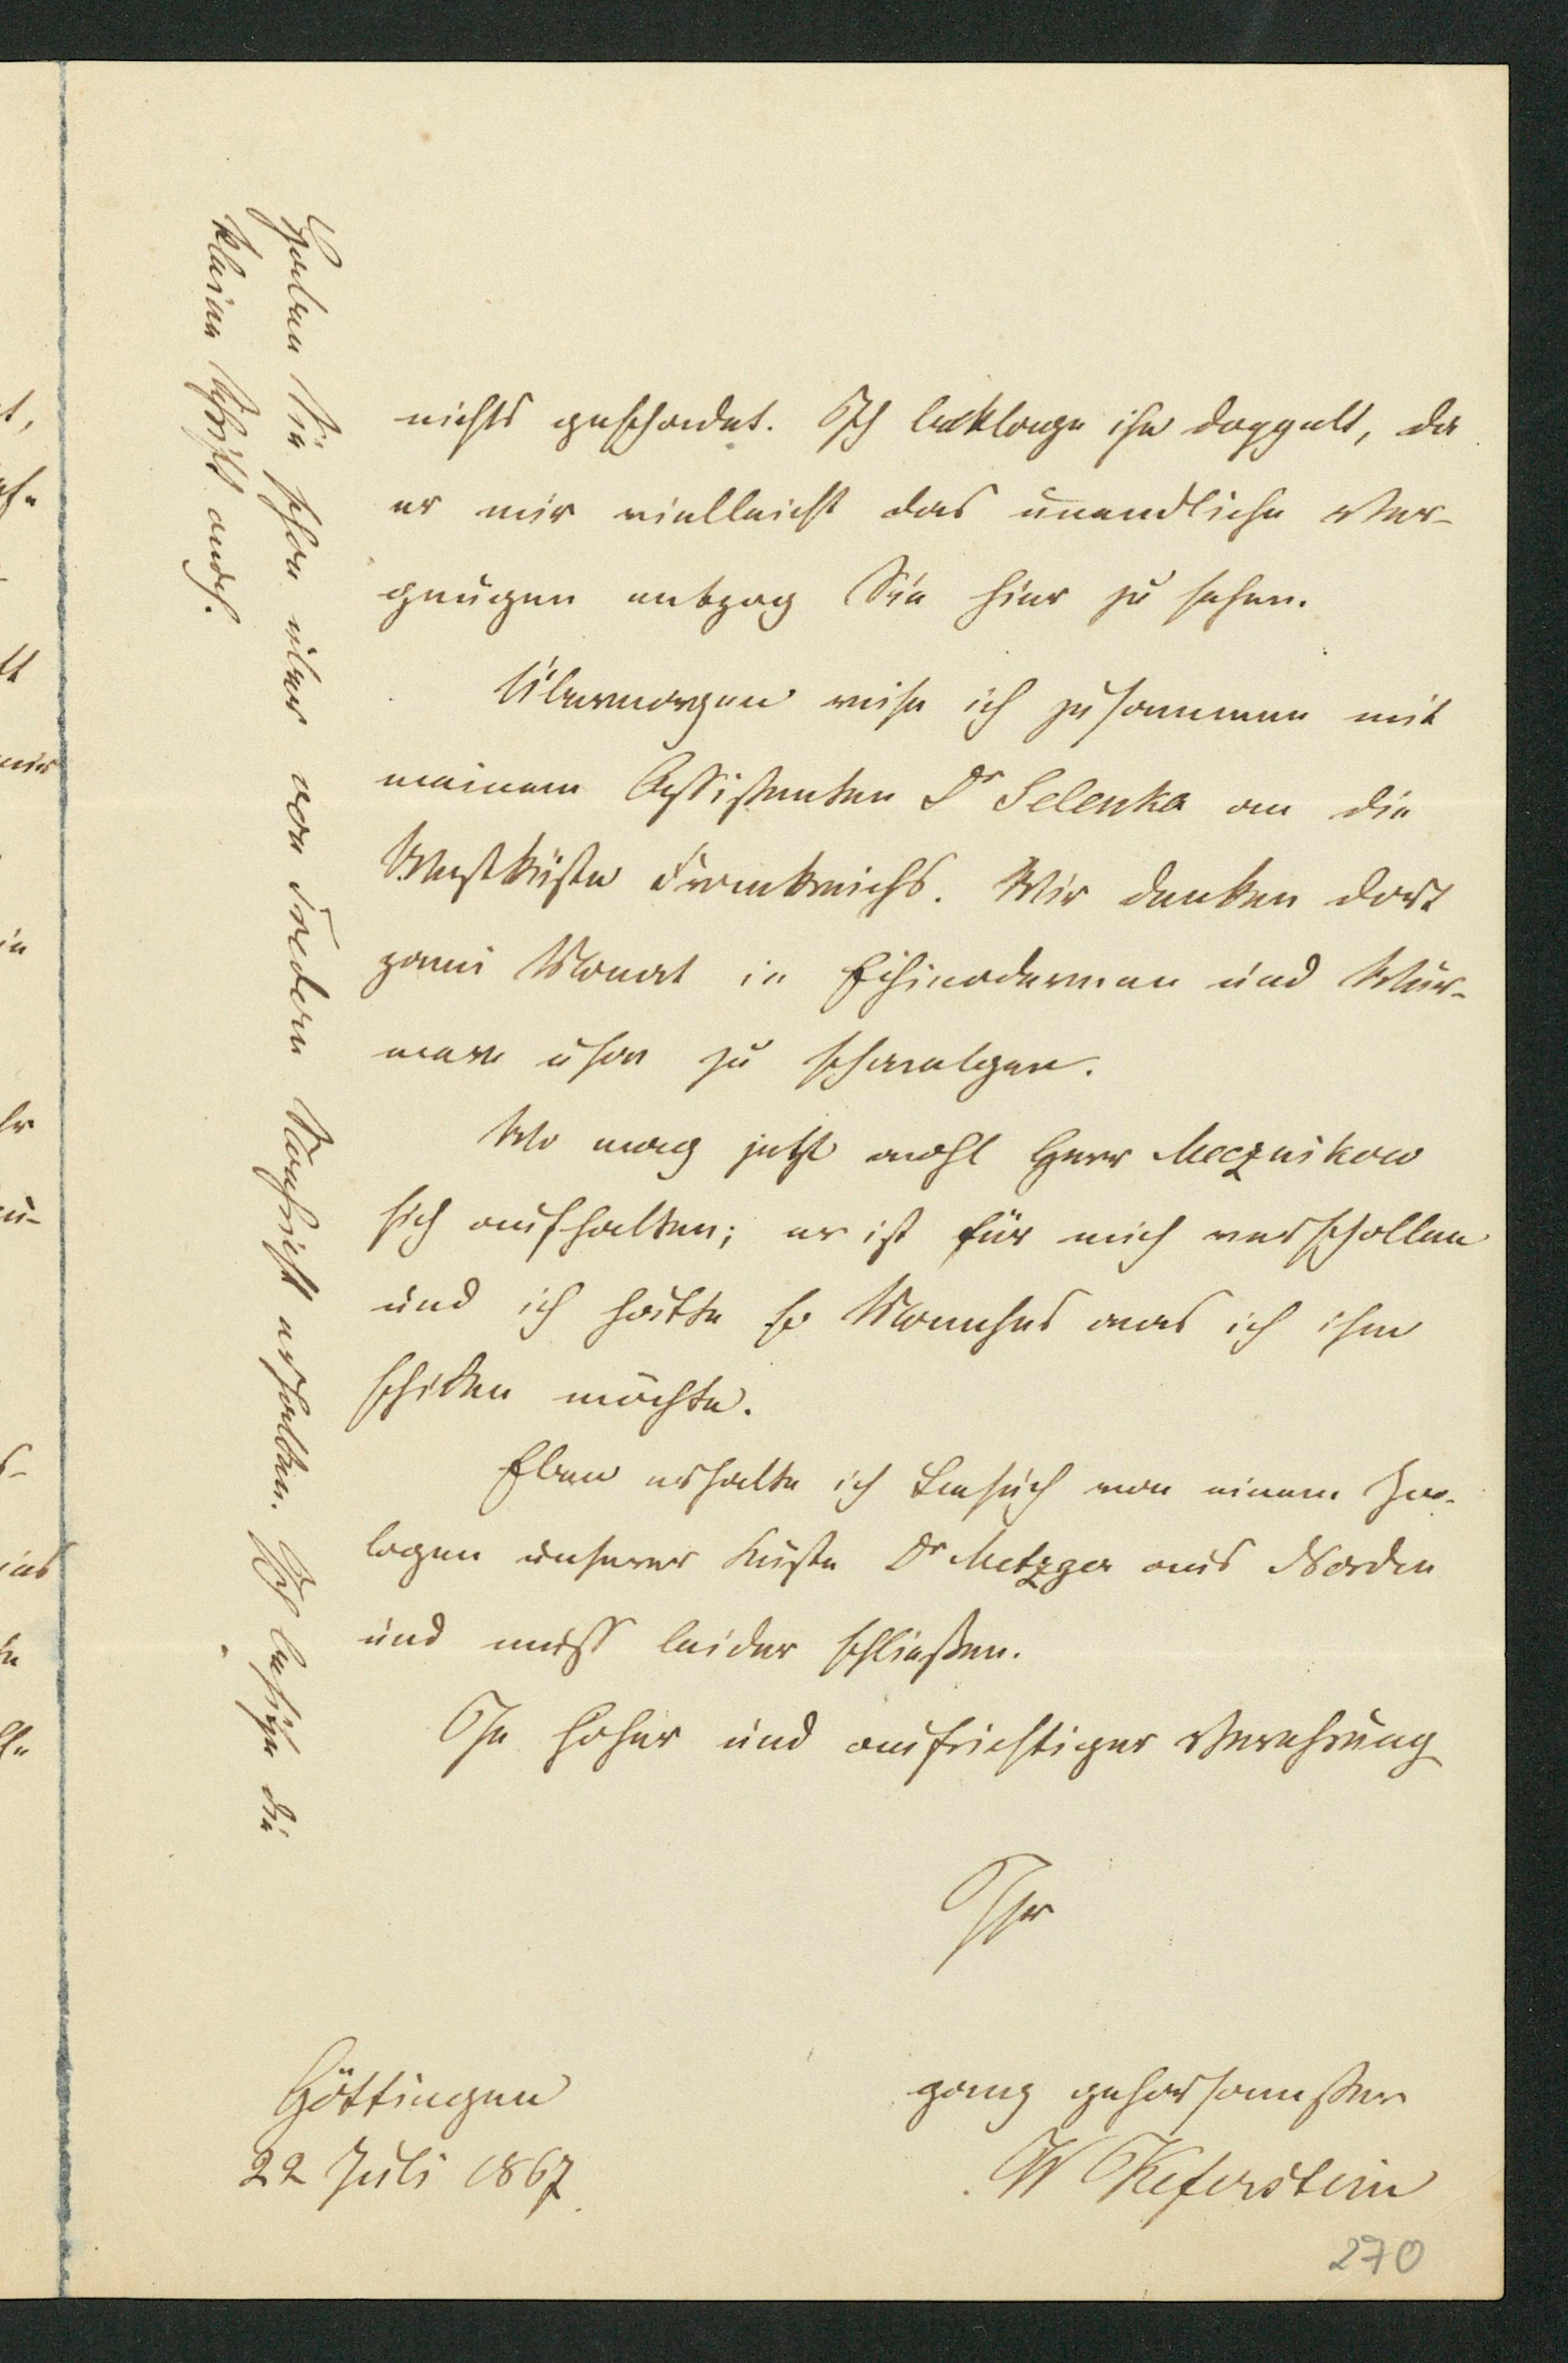 nichts geschadet. Ich beklage ihn doppelt, da
er mir vielleicht das unendliche Ver-
gnügen entzog Sie hier zu sehen.
Übermorgen reise ich zusammen mit
meinem Assistenten Dr Selenka an die
Westküste Frankreichs. Wir denken dort
zwei Monat in Echinodermen und Wür-
mern usw zu schwelgen.
Wo mag jetzt wohl Herr Mecznikow
sich aufhalten; er ist für mich verschollen
und ich hätte so Manches was ich ihm
schicken möchte.
Eben erhalte ich Besuch von einem Zoo-
logen unserer Küste Dr Metzger aus Norden
und muss leider schließen.
In hoher und aufrichtiger Verehrung
Ihr
ganz gehorsamster
W Keferstein
Göttingen
22 Juli 1867.
Haben Sie schon über von Nachricht erhalten. Ich besitze die
kleine Schrift auch.
270